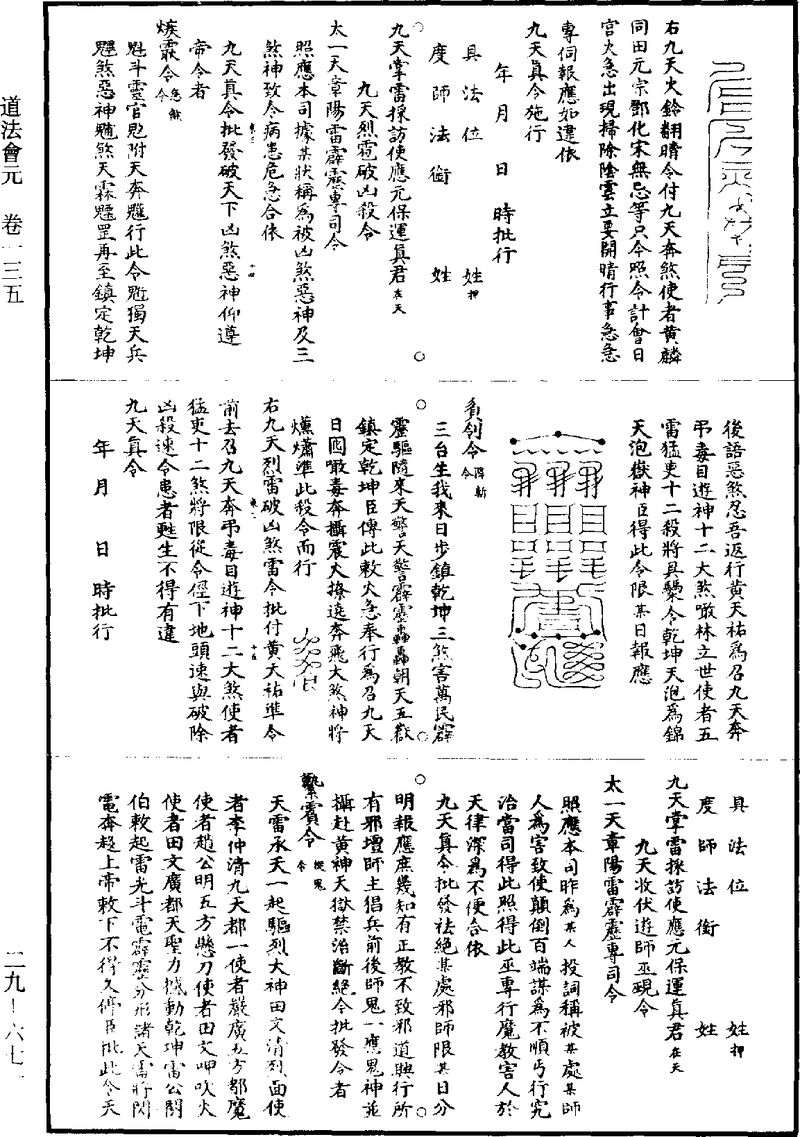 道法會元　卷一三五
右九天火鈴翻晴令付九天奔煞使者黃麟
同田元宗鄧化宋無忌等只今照令計會日
宮火急出現掃除陰雲立要開晴行事急急
專伺報應如違依
九天真令施行
年　月　日　時批行
具法位　姓押
度師法銜　姓
九天掌雷採訪使應元保運真君在天
九天烈雹破凶殺令
太一天章陽雷霹靂專司令
照應本司據某狀稱為被凶煞惡神及三
煞神致令病患危急合依
九天真令批發破天下凶煞惡神仰遵
帝令者
急煞令
魁斗靈官 附天奔 行此令 獨天兵
煞惡神 煞天霖 罡再至鎮定乾坤
後語惡煞忍吾返行黃天祐為召九天奔
弔毒目遊神十二大煞噉林立世使者五
雷猛吏十二殺將具槩令乾坤天泡為錦
天泡嶽神臣得此令限某日報應
令
三台生我來日步鎮乾坤三煞害萬民霹
靂驅隨來天警天警霹靂轟轟朝天五嶽
鎮定乾坤臣傳此敕火急奉行為召九天
日 噉毒奔攝震火撩遶奔飛大煞神將
準此殺令而行
右九天烈雷破凶煞雷令批付黃天祐準令
前去召九天奔弔毒目遊神十二大煞使者
猛吏十二煞將限從令徑下地頭速與破除
凶殺速令患者甦生不得有違
九天真令
年　月　日　時批行
具法位　姓押
度師法銜　姓
九天掌雷採訪使應元保運真君在天
九天收伏遊師巫覡令
太一天章陽雷霹靂專司令
照應本司昨為某人投詞稱被某處某師
人為害致使顛倒百端謀為不順丐行究
治當司得此照得此巫專行魔教害人於
天律深為不便合依
九天真令批發袪絕某處邪師限某日分
明報應庶幾知有正教不致邪道興行所
有邪壇師主猖兵前後師鬼一應鬼神並
攝赴黃神天獄禁治斷絕令批發令者
賓令
天雷承天一起驅烈大神田文清烈面使
者李仲清九天都一使者嚴廣五方都魔
使者趙公明五方懸刀使者田文呷吹火
使者田文廣都天聖力撼動乾坤雷公閻
伯敕起雷光斗電霹靂分形諸天雷將閃
電奔趍上帝敕下不得久停臣批此令天
二九－六七一